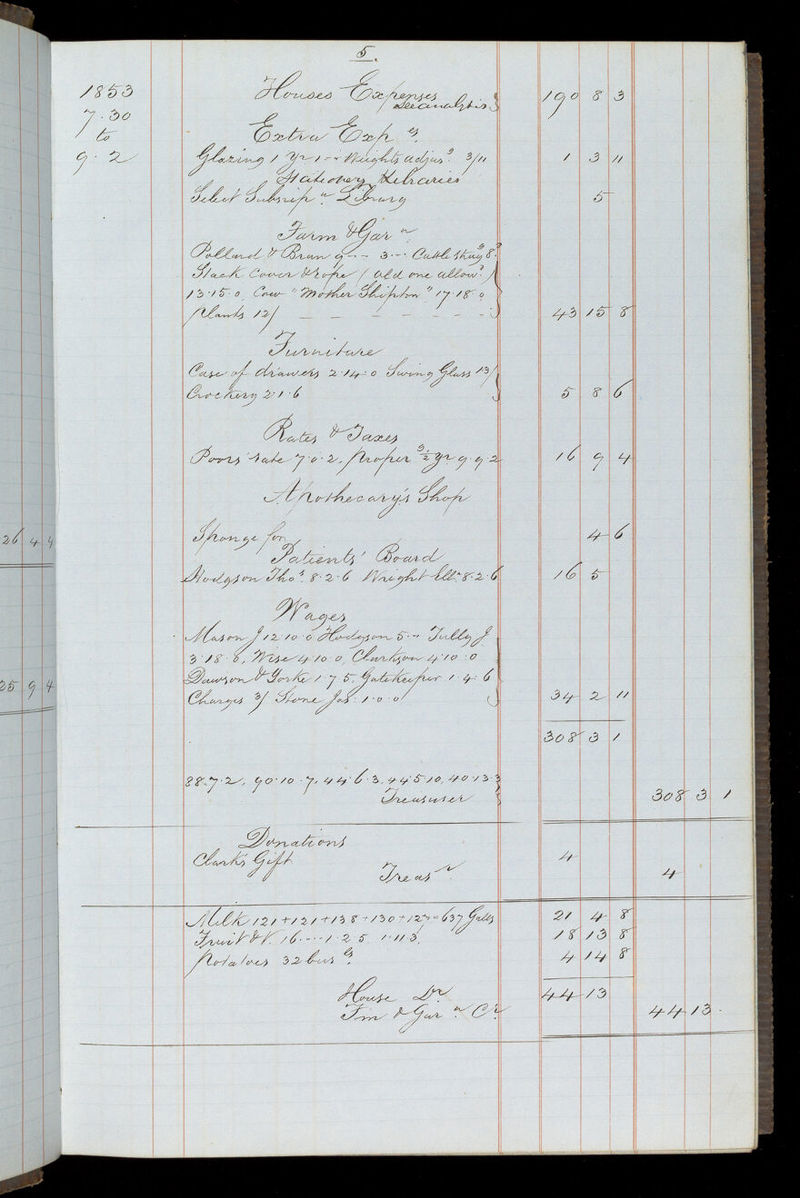 5.
1853
7.30
to
9.2
Houses Expenses see analysis 190 8 3
Extra Expes
Glazing 1 Yr 1 -- Weights adjusg 3/11 1 3 11
Stationery & Libraries
Select Subscripn Library 5
Farm & Garn
Pollard & Bran 9 -- 3 -- Cattle
Stack Cover & rope (old one allowd)
13.15.0. Cow "Mother Shipton" 17.18.0
Plants 12/ - - - - - - 43 15 8
Furniture
Case of drawers 2.14.0 Swing Glass 13/
Crockery 2.1.6 5 8 6
Rates & Taxes
Poors' rate 7.0.2, proper ½ yr 9.9.2 16 9 4
Apothecary's Shop
Sponge for 4 6
26 4 4
Patients' Board
Hodgson Thos. 8.2.6 Wright 8.2.6 16 5
Wages
Mason J 12.10.0 Hodgson 5 -- Tully J.
3.18.0, Wise 4.10.0, Clarkson 4.10.0
Dawson & Yorke 1.7.5. Gatekeeper 1.4.6
25 9 4
Charges 3/ Stone Jas. 1.0.0 34 2 11
308 3 1
88.7.2, 90.10.7, 44.6.3, 44.5.10, 40.13.3
Treasurer 308 3 1
Donations
Clark's Gift 4
Treasr 4
Milk 121+121+138+130+127=637 Galls 21 4 8
Fruit & V. 16 ---- 1.2.5 1.11.3. 18 13 8
Potatoes 32 bus 4 14 8
House Dr 44 13
Fm & Garn Cr 44 13.